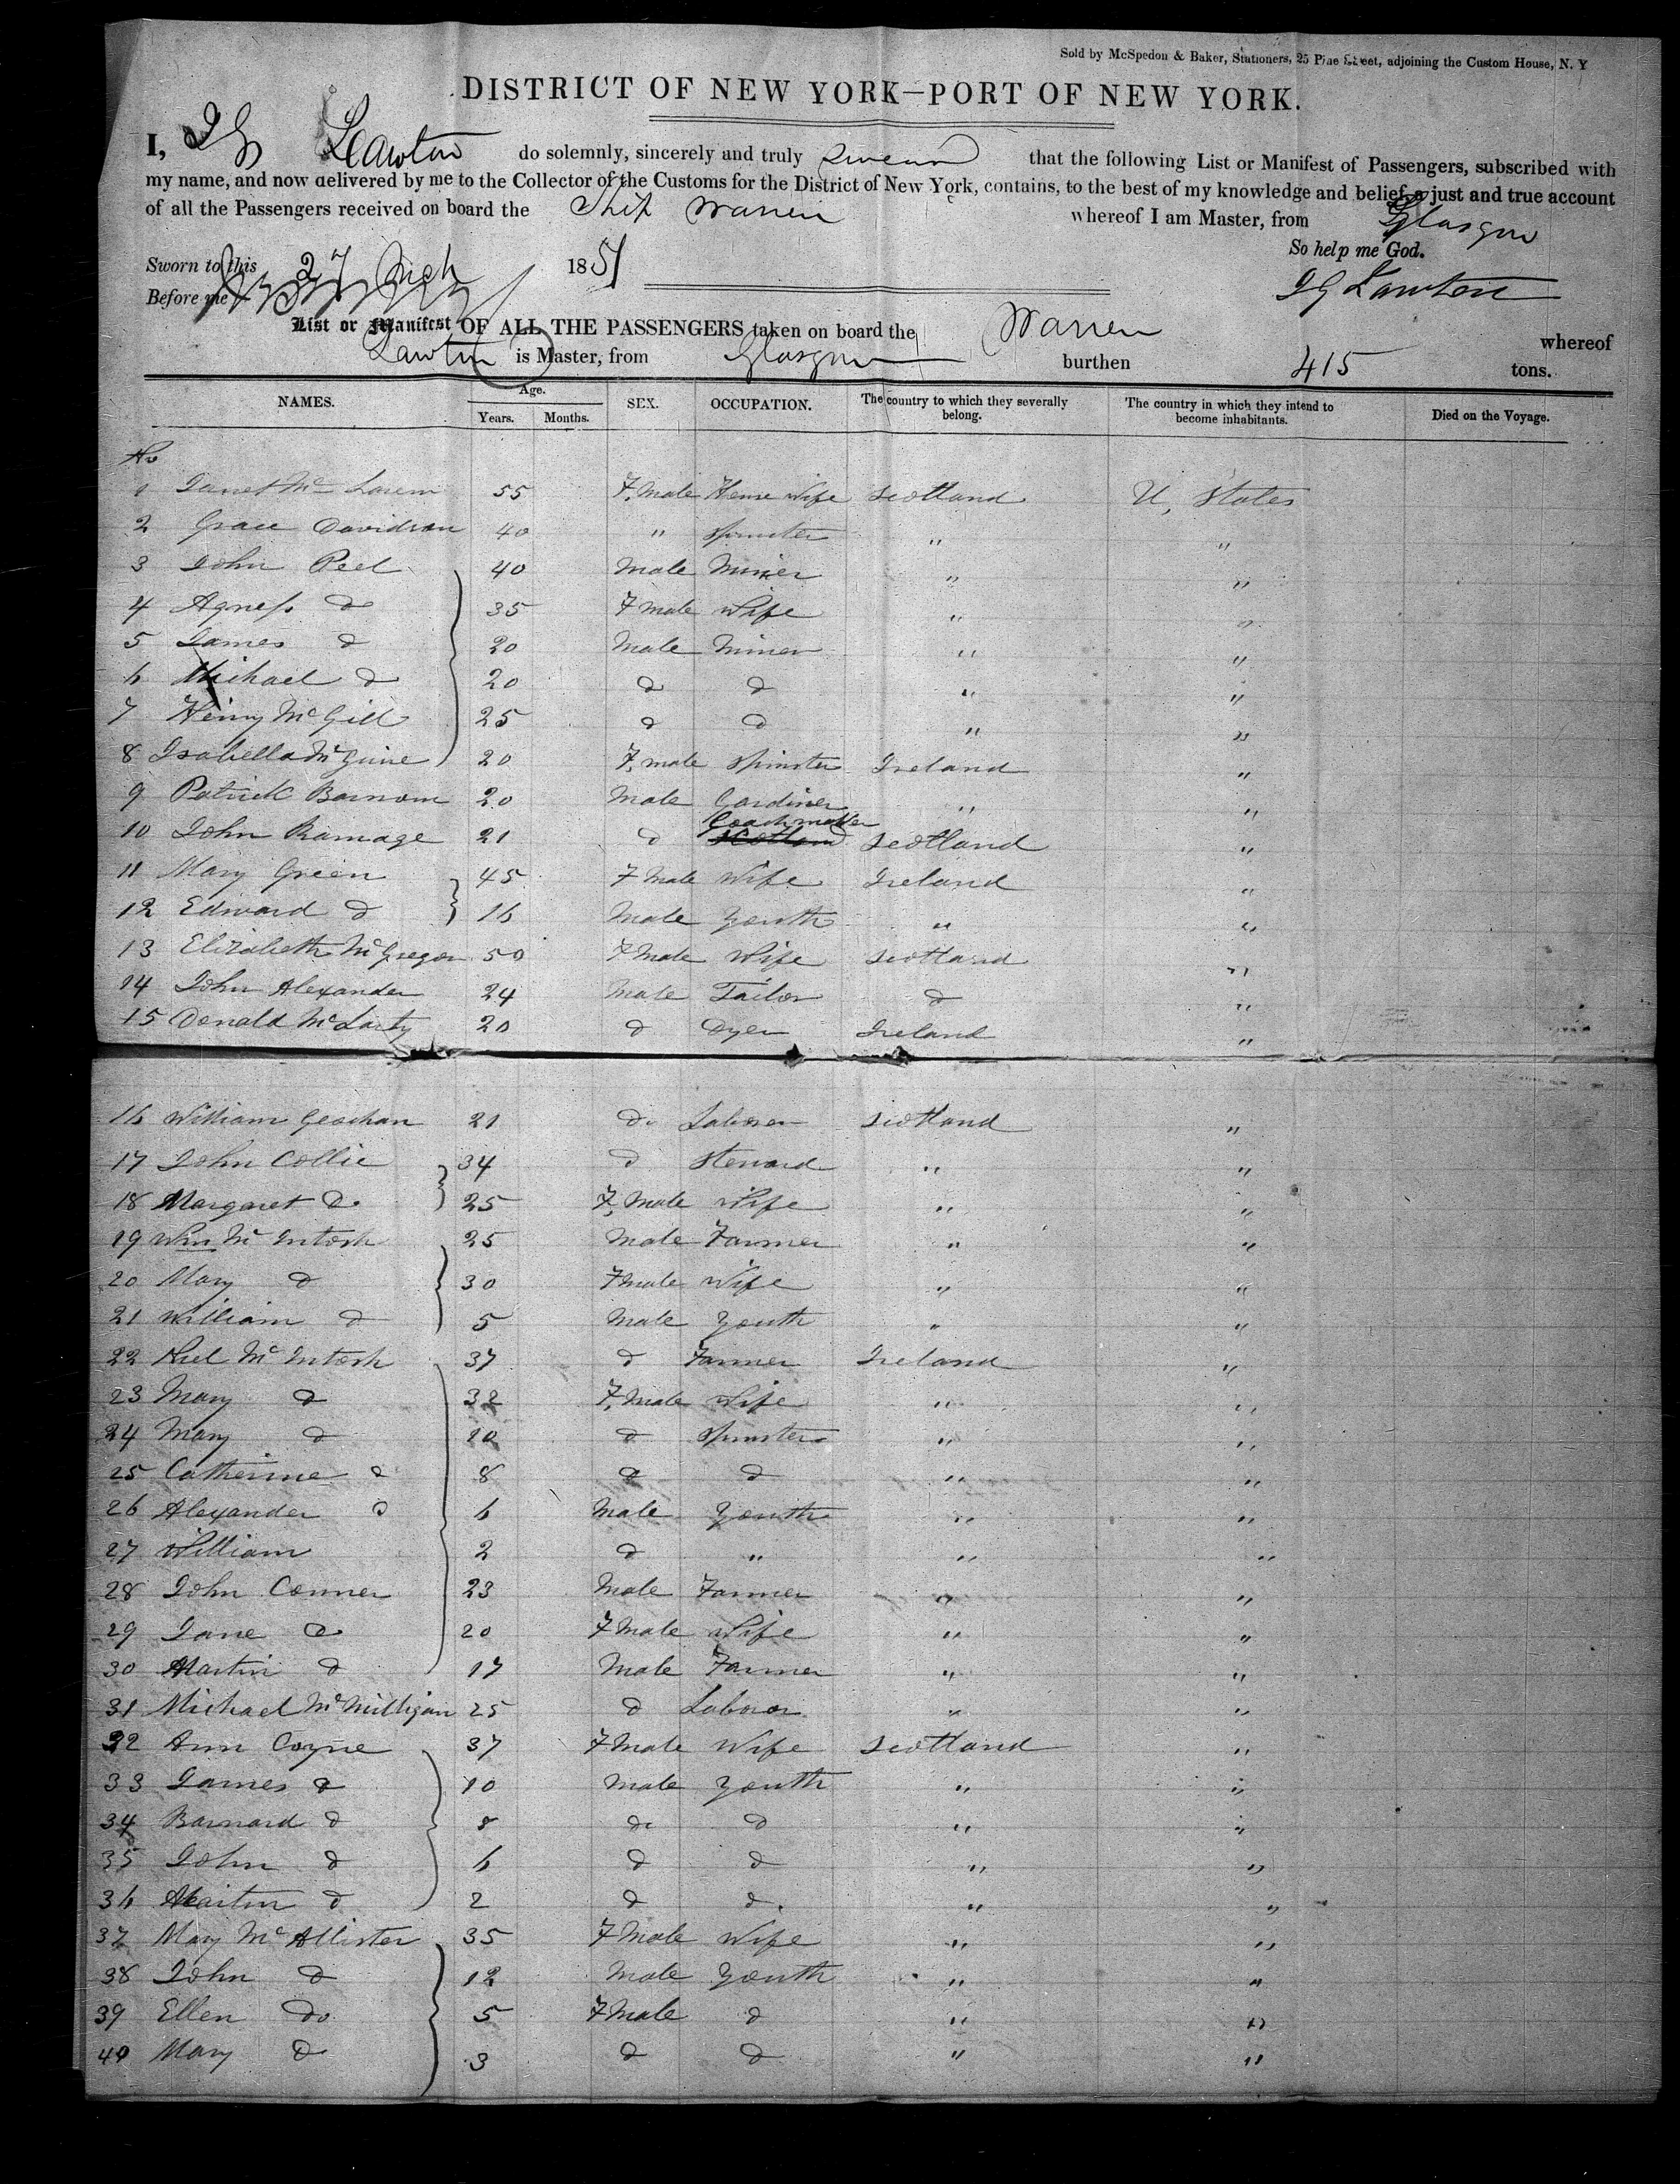 Sold by McSpedon & Baker, Stationers, 25 Pine Street, adjoining the Custom House, N. Y
DISTRICT OF NEW YORK—PORT OF NEW YORK.
I, J G Lawton do solemnly, sincerely and truly swear that the following List or Manifest of Passengers, subscribed with
my name, and now delivered by me to the Collector of the Customs for the District of New York, contains, to the best of my knowledge and belief, a just and true account
of all the Passengers received on board the Ship Warren whereof I am Master, from Glasgow
So help me God.
Sworn to this 27 Mch 1851
J G Lawton
Before me
List or Manifest OF ALL THE PASSENGERS taken on board the Warren whereof
Lawton is Master, from Glasgow burthen 415 tons.
NAMES. Age. Years. Months. SEX. OCCUPATION. The country to which they severally belong. The country in which they intend to become inhabitants. Died on the Voyage.
No
1 Janet Mc Laren 55 F. Male House Wife Scotland U, States
2 Grace Davidson 40 " Spinster " "
3 John Peel 40 Male Miner " "
4 Agness do 35 F male Wife " "
5 James do 20 Male Miner " "
6 Michael do 20 do do " "
7 Henry McGill 25 do do " "
8 Isabella McGuire 20 F. male Spinster Ireland "
9 Patrick 20 Male Gardiner " "
10 John Ramage 21 do Coachmaker Scotland Scotland "
11 Mary Green 45 F Male Wife Ireland "
12 Edward do 16 Male Youth " "
13 Elizabeth McGregor 50 F Male Wife Scotland "
14 John Alexander 24 Male Tailor do "
15 Donald McLarty 20 do Dyer Ireland "
16 William 21 do Laborer Scotland "
17 John Collie 34 do Steward " "
18 Margaret do 25 F. Male Wife " "
19 Wm Mc Intosh 25 Male Farmer " "
20 Mary do 30 F male Wife " "
21 William do 5 Male Youth " "
22 Niel Mc Intosh 37 do Farmer Ireland "
23 Mary do 32 F. Male Wife " "
24 Mary do 10 do Spinster " "
25 Catherine do 8 do do " "
26 Alexander do 6 Male Youth " "
27 William 2 do " " "
28 John Conner 23 Male Farmer " "
29 Jane do 20 F Male Wife " "
30 Martin do 17 Male Farmer " "
31 Michael McMilligan 25 do Laborer " "
32 Ann Coyne 37 F Male Wife Scotland "
33 James do 10 Male Youth " "
34 Barnard do 8 do do " "
35 John do 6 do do " "
36 Martin do 2 do do " "
37 Mary McAllister 35 F Male Wife " "
38 John do 12 Male Youth " "
39 Ellen Do 5 F Male do " "
40 Mary do 3 do do " "